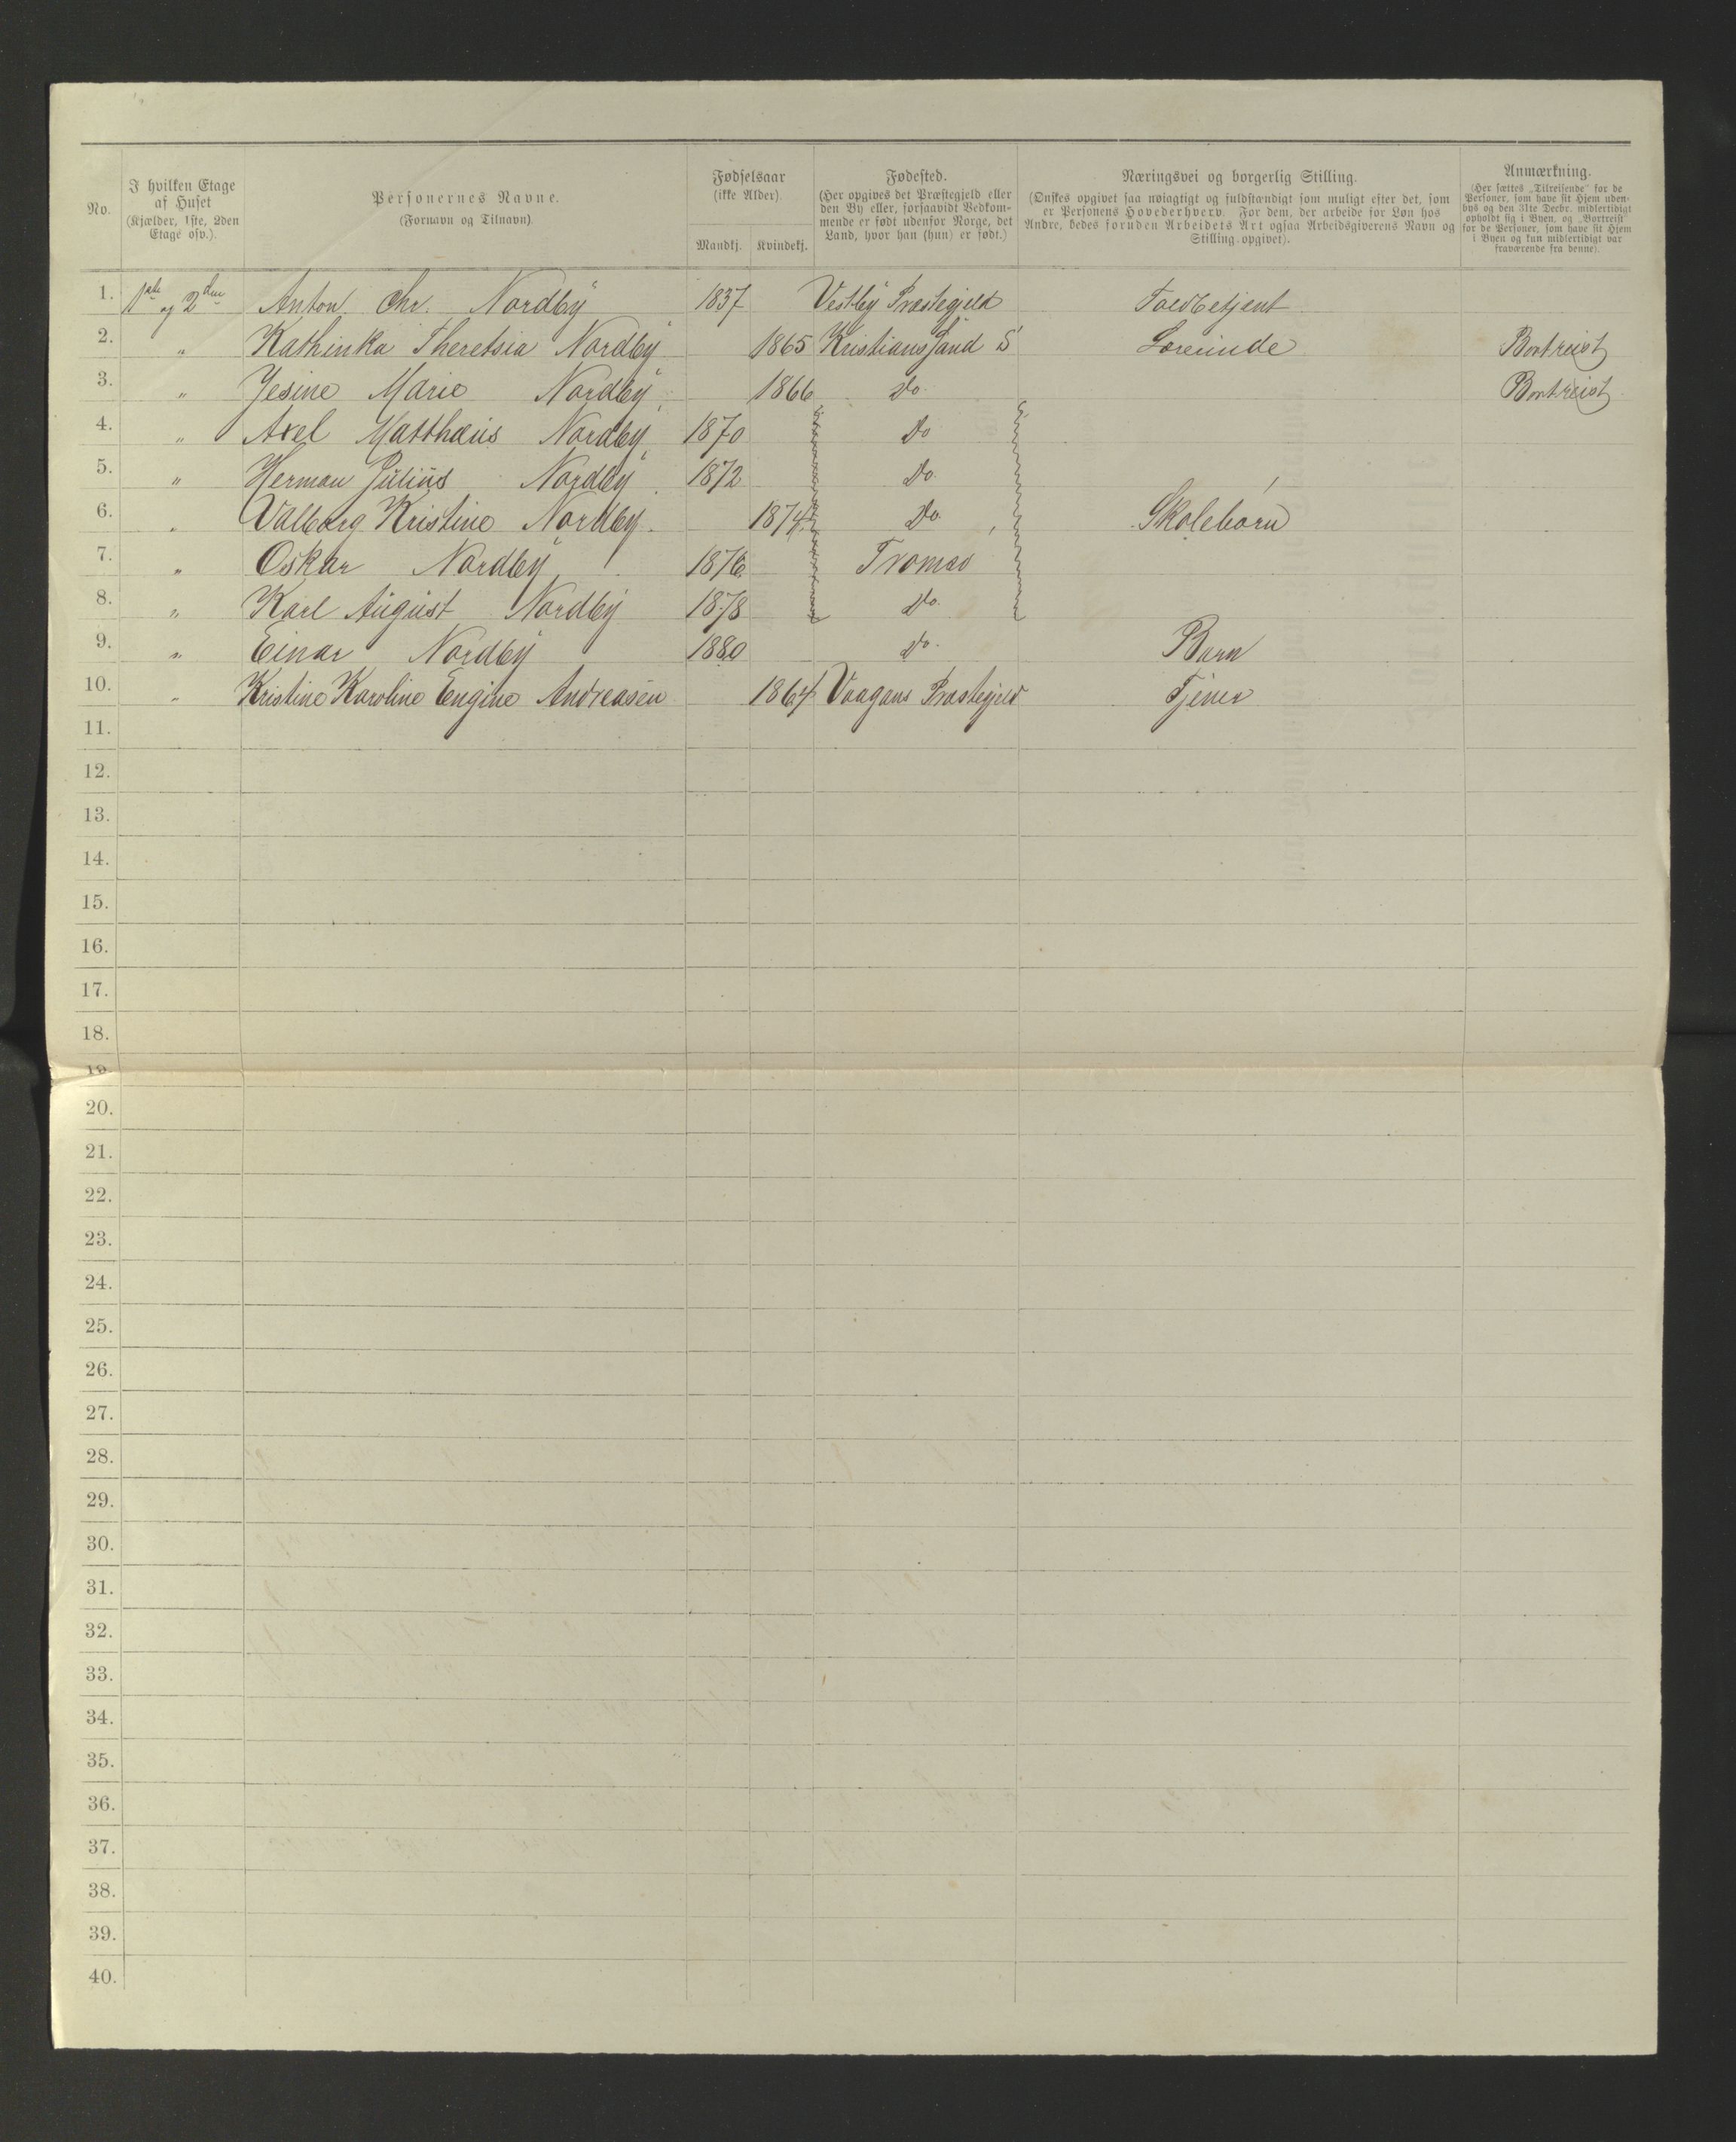 No.
I hvilken Etage
af Huset
(Kjælder, 1ste, 2den
Etage osv.).
Personernes Navne.
(Fornavn og Tilnavn).
Fødselsaar
(ikke Alder).
Mandkj. Kvindekj.
Fødested.
(Her opgives det Præstegjeld eller
den By eller, forsaavidt Vedkom-
mende er født udenfor Norge, det
Land, hvor han (hun) er født.)
Næringsvei og borgerlig Stilling.
(Ønskes opgivet saa nøiagtigt og fuldstændigt som muligt efter det, som
er Personens Hovederhverv. For dem, der arbeide for Løn hos
Andre, bedes foruden Arbeidets Art ogsaa Arbeidsgiverens Navn og
Stilling opgivet).
Anmærkning.
(Her sættes „Tilreisende" for de
Personer, som have sit Hjem uden-
bys og den 31te Decbr. midlertidigt
opholdt sig i Byen, og „Bortreist"
for de Personer, som have sit Hjem
i Byen og kun midlertidigt var
fraværende fra denne).
1. 1ste og 2den Anton Chr. Nordby 1837 Vestby Præstegjeld Toldbetjent
2. " Kathinka Theretsia Nordby 1865 Kristianssand S Lærerinde Bortreist
3. " Jesine Marie Nordby 1866 Do. Bortreist
4. " Axel Matthæus Nordby 1870 Do
5. " Herman Julius Nordby 1872 Do.
6. " Valborg Kristine Nordby. 1874 Do. Skolebørn
7. " Oskar Nordby 1876 Tromsø
8. " Karl August Nordby 1878 Do.
9. " Einar Nordby 1880 Do. Barn
10. " Kristine Karoline Engine Andreasen 1864 Vaagans Præstegjeld Tjener
11.
12.
13.
14.
15.
16.
17.
18.
19.
20.
21.
22.
23.
24.
25.
26.
27.
28.
29.
30.
31.
32.
33.
34.
35.
36.
37.
38.
39.
40.